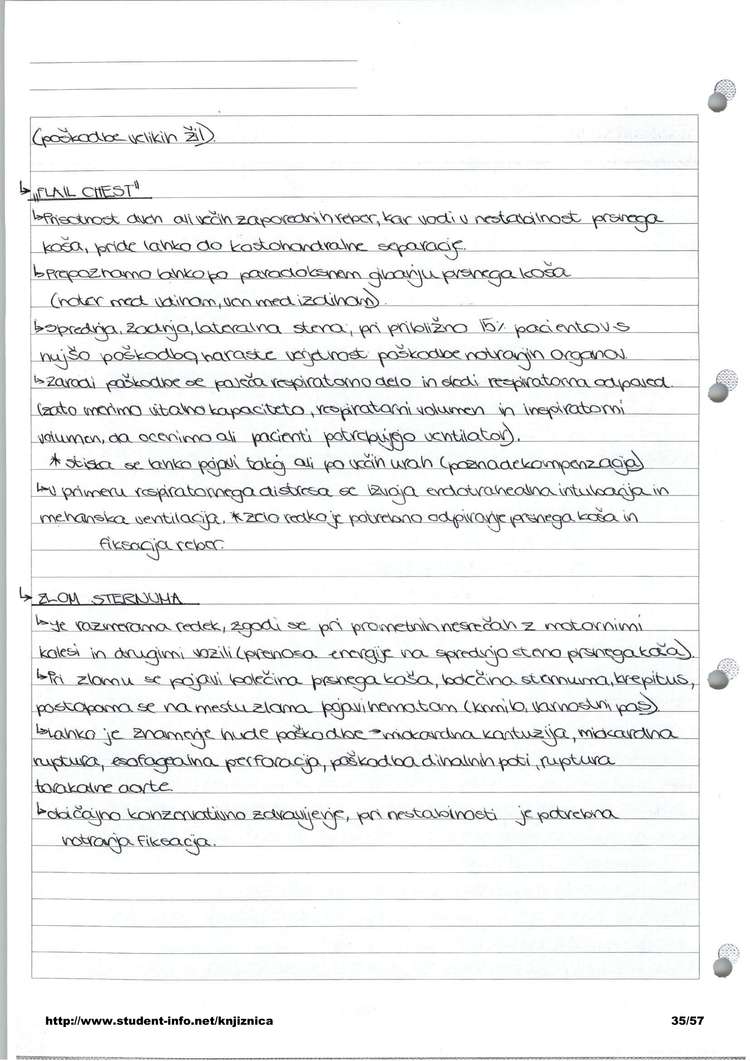 (poškodbe velikih žil)
↳ "FLAIL CHEST"
↳ Prisotnost dveh ali večih zaporednih reber, kar vodi v nestabilnost prsnega
koša, pride lahko do kostohondralne separacije.
↳ Prepoznamo lahko po paradoksnem gibanju prsnega koša
(noter med vdihom, ven med izdihom).
↳ sprednja, zadnja, lateralna stena, pri približno 15% pacientov s
hujšo poškodbo naraste verjetnost poškodbe notranjih organov
↳ Zaradi poškodbe se poveča respiratorno delo in sledi respiratorna odpoved.
(zato merimo vitalno kapaciteto, respiratorni volumen in inspiratorni
volumen, da ocenimo ali pacienti potrebujejo ventilator).
* stiska se lahko pojavi takoj ali po večih urah (pozna dekompenzacija)
↳ v primeru respiratornega distresa se izvaja endotrahealna intubacija in
mehanska ventilacija. * zelo redko je potrebno odpiranje prsnega koša in
fiksacija reber.
↳ ZLOM STERNUMA
↳ Je razmeroma redek, zgodi se pri prometnih nesrečah z motornimi
kolesi in drugimi vozili (prenosa energije na sprednjo steno prsnega koša).
↳ Pri zlomu se pojavi bolečina prsnega koša, bolečina sternuma, krepitus,
postopoma se na mestu zloma pojavi hematom (krmilo, varnostni pas).
↳ lahko je znamenje hude poškodbe → miokardna kontuzija, miokardna
ruptura, esofagealna perforacija, poškodba dihalnih poti, ruptura
torakalne aorte.
↳ običajno konzervativno zdravljenje, pri nestabilnosti je potrebna
notranja fiksacija.
http://www.student-info.net/knjiznica
35/57